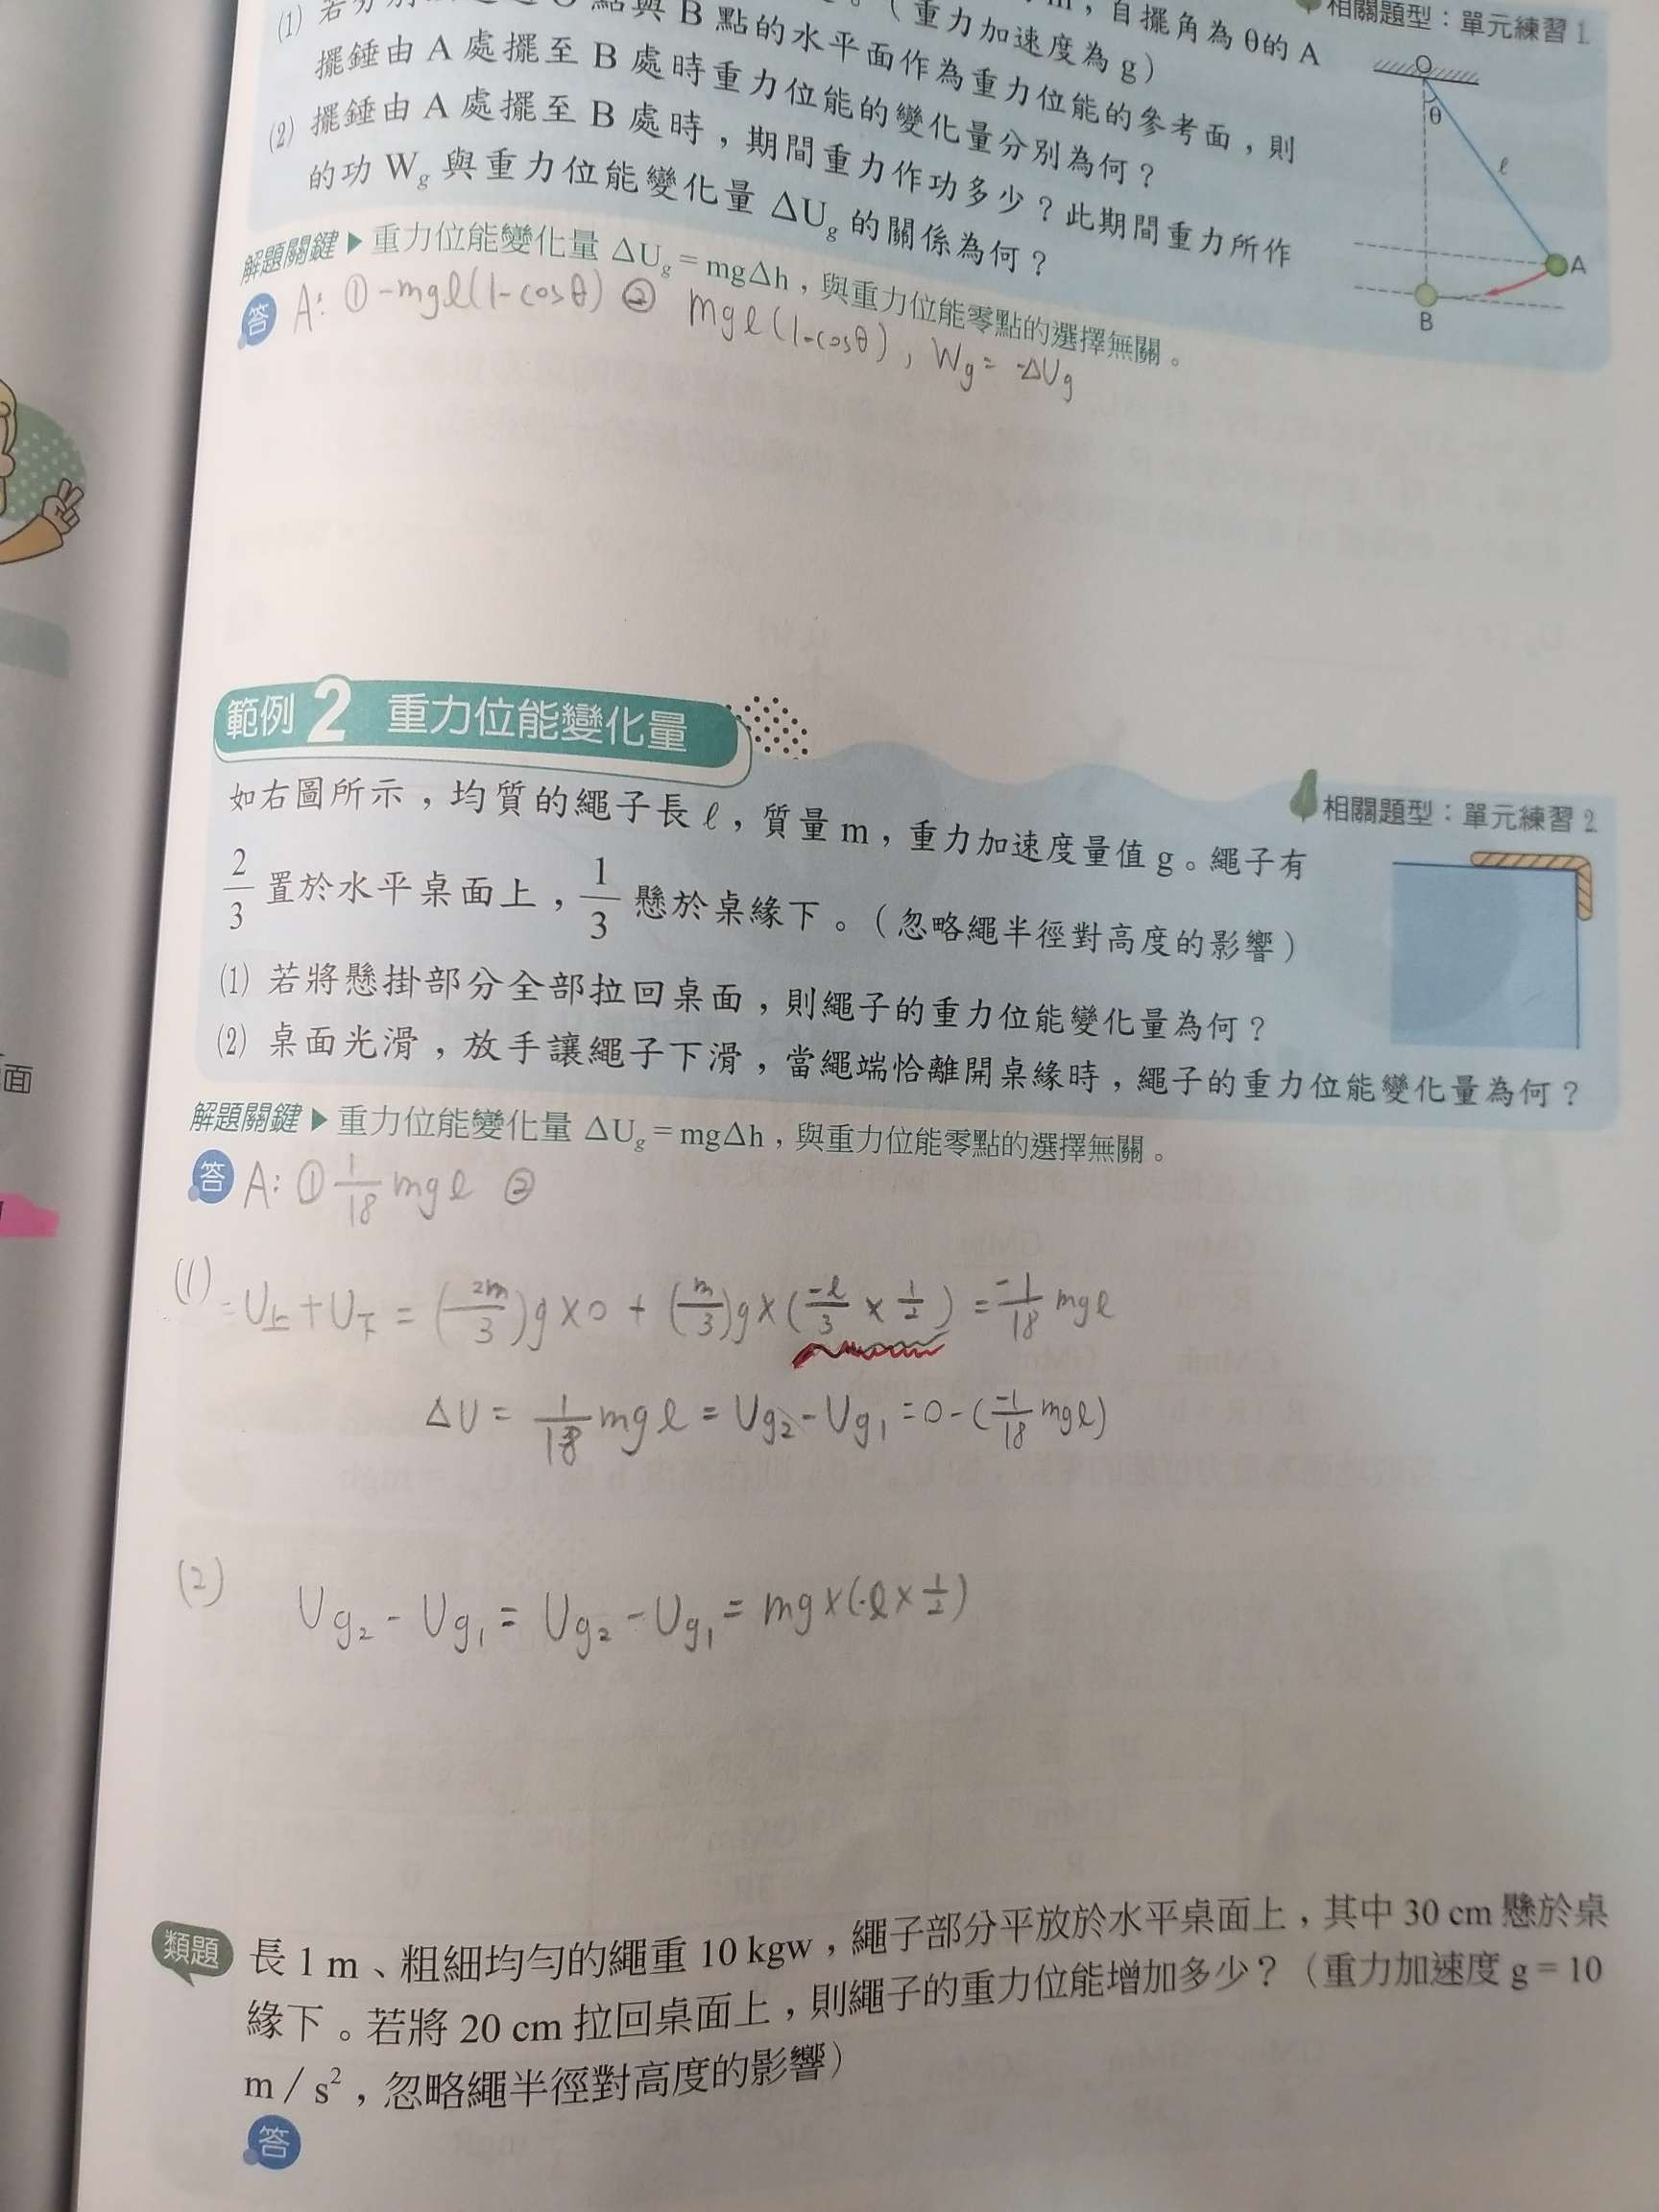 相關題型：單元練習 1.
，自擺角為θ的 A
(1) 點與 B 點的水平面作為重力位能的參考面，則
（重力加速度為 g）
擺錘由 A 處擺至 B 處時重力位能的變化量分別為何？
(2) 擺錘由 A 處擺至 B 處時，期間重力作功多少？此期間重力所作
的功 Wg 與重力位能變化量 ΔUg 的關係為何？
O
θ
ℓ
A
B
解題關鍵▶重力位能變化量 ΔUg = mgΔh，與重力位能零點的選擇無關。
答 A: ① -mgℓ(1-cosθ) ② mgℓ(1-cosθ), Wg = -ΔUg
範例 2 重力位能變化量
相關題型：單元練習 2.
如右圖所示，均質的繩子長 ℓ，質量 m，重力加速度量值 g。繩子有
2/3 置於水平桌面上，1/3 懸於桌緣下。（忽略繩半徑對高度的影響）
(1) 若將懸掛部分全部拉回桌面，則繩子的重力位能變化量為何？
(2) 桌面光滑，放手讓繩子下滑，當繩端恰離開桌緣時，繩子的重力位能變化量為何？
解題關鍵▶重力位能變化量 ΔUg = mgΔh，與重力位能零點的選擇無關。
答 A: ① 1/18 mgℓ ②
(1) = U上 + U下 = (2m/3)g×0 + (m/3)g×(-ℓ/3 × 1/2) = -1/18 mgℓ
ΔU = 1/18 mgℓ = Ug2 - Ug1 = 0 - (-1/18 mgℓ)
(2) Ug2 - Ug1 = Ug2 - Ug1 = mg×(-ℓ×1/2)
面
類題 長 1 m、粗細均勻的繩重 10 kgw，繩子部分平放於水平桌面上，其中 30 cm 懸於桌
緣下。若將 20 cm 拉回桌面上，則繩子的重力位能增加多少？（重力加速度 g = 10
m／s²，忽略繩半徑對高度的影響）
答